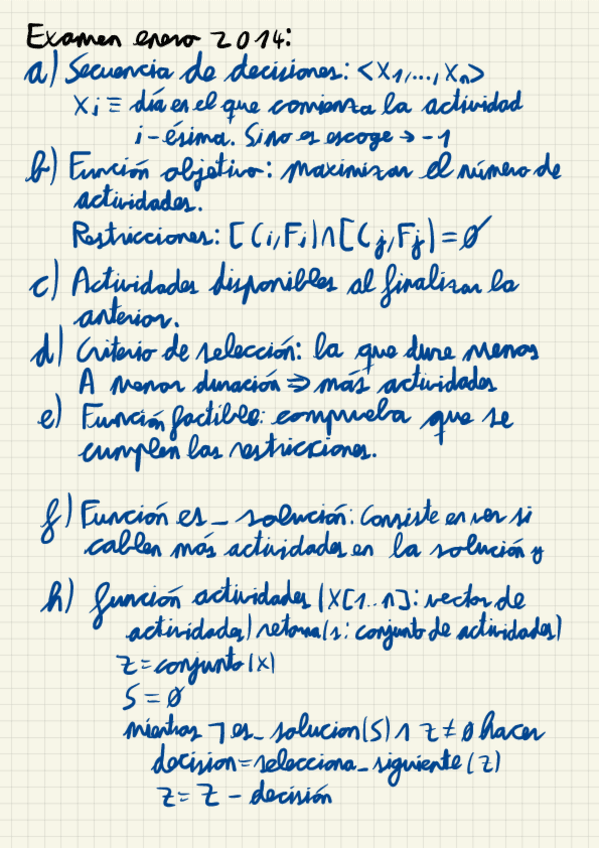 Examen enero 2014:
a) Secuencia de decisiones: <X1,..., Xn>
Xi ≡ día en el que comienza la actividad
i-ésima. Si no es escoge → -1
b) Función objetivo: maximizar el número de
actividades.
Restricciones: [Ci,Fi)∩[Cj,Fj)=∅
c) Actividades disponibles al finalizar la
anterior.
d) Criterio de selección: la que dure menos
A menor duración ⇒ más actividades
e) Función factible: comprueba que se
cumplen las restricciones.
f) Función es_solución: Consiste en ver si
caben más actividades en la solución y
h) función actividades (X[1..n]: vector de
actividades) retorna(s: conjunto de actividades)
Z=conjunto(x)
S=∅
mientras ¬es_solucion(S) ∧ Z≠∅ hacer
decision=selecciona_siguiente(Z)
Z=Z-decisión